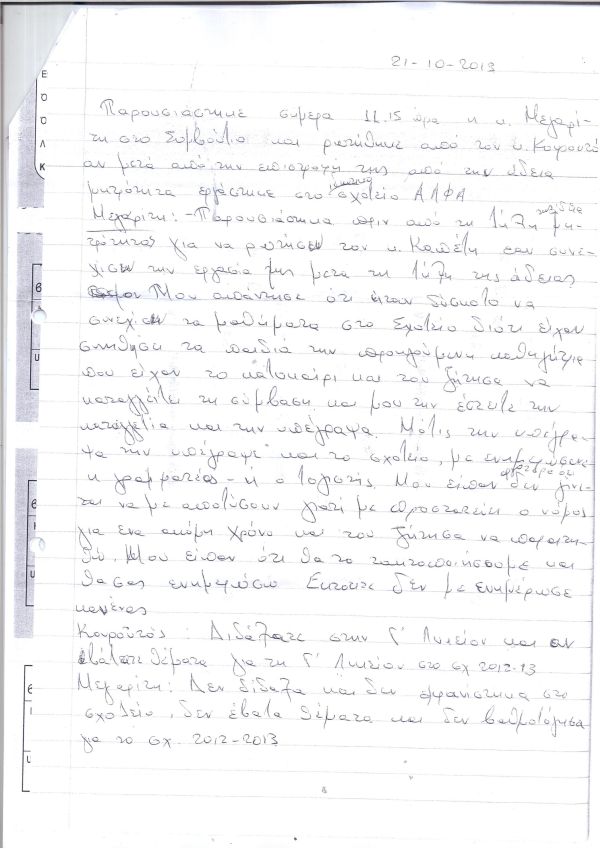 21-10-2013
Ε
Ο
Ο
Λ
Κ
Παρουσιάστηκε σήμερα 11.15 ώρα η κ. Μεγαρί-
τη στο Συμβούλιο και ρωτήθηκε από τον κ. Καρουτσό
αν μετά από την επιστροφή της από την άδεια
μητρότητα εργάστηκε στο σχολείο ΑΛΦΑ
Μεγαρίτη: -Παρουσιάστηκα πριν από τη λήξη της άδειας μη-
τρότητος για να ρωτήσω τον κ. Καπέτη εαν συνε-
χίσω την εργασία μης μετα τη λήξη της άδειας
Μου απάντησε ότι ήταν δύσκολο να
συνεχίσω τα μαθήματα στο Σχολείο διότι είχαν
συνηθήση τα παιδιά την προηγούμενη καθηγήτρια
που είχαν το καλοκαίρι και του ζήτησα να
καταγγείλει τη σύμβαση και μου την έστειλε την
καταγγελία και την υπέγραψα. Μόλις την υπέγρα-
ψα την υπέγραψε και το σχολείο, με ενημέρωσε
η γραμματέας - η ο λογιστής. Μου είπαν αργότερα ότι δεν γίνε-
ται να με απολύσουν γιατί με προστατεύει ο νόμος
για ενα ακόμη χρόνο και του ζήτησα να παραιτη-
θώ. Μου είπαν ότι θα το τακτοποιήσουμε και
θα σας ενημερώσω Εκτοτε δεν με ενημέρωσε
κανένας
Καρουτσός: Διδάξατε στην Γ' Λυκείου και αν
εβάλατε θέματα για τη Γ' Λυκείου στο σχ 2012-13
Μεγαρίτη: Δεν δίδαξα και δεν εμφανίστηκα στο
σχολείο, δεν έβαλα θέματα και δεν βαθμολόγησα
για το σχ. 2012-2013